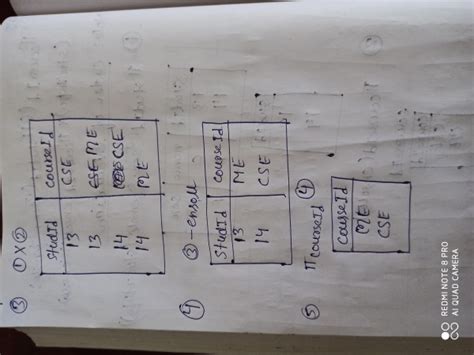 ③ ①X②
studId courseId
13 CSE
13 ME
14 CSE
14 ME
④ ③-enroll
studId courseId
13 ME
14 CSE
⑤ π courseId ④
courseId
ME
CSE
REDMI NOTE 8 PRO
AI QUAD CAMERA